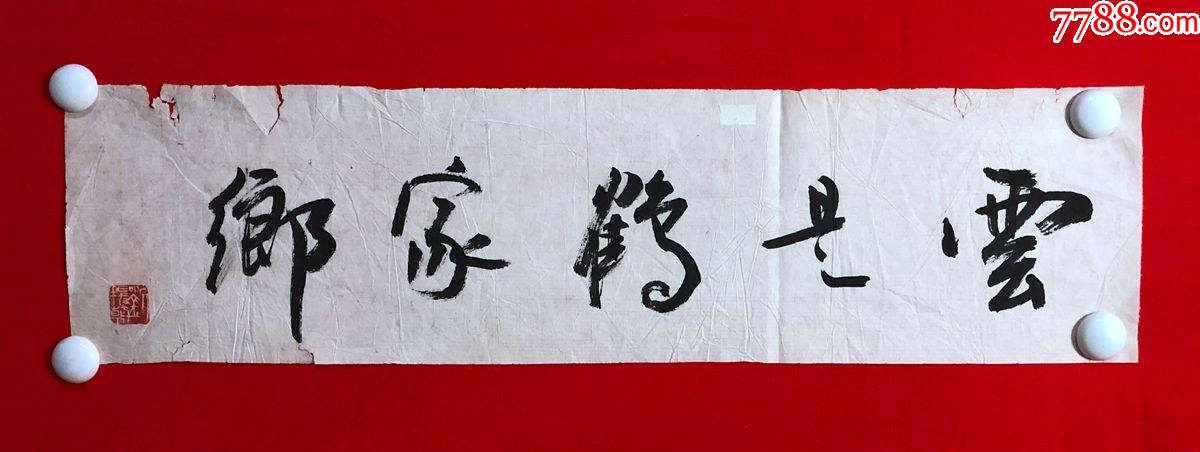 7788.com
雲是鶴家鄉